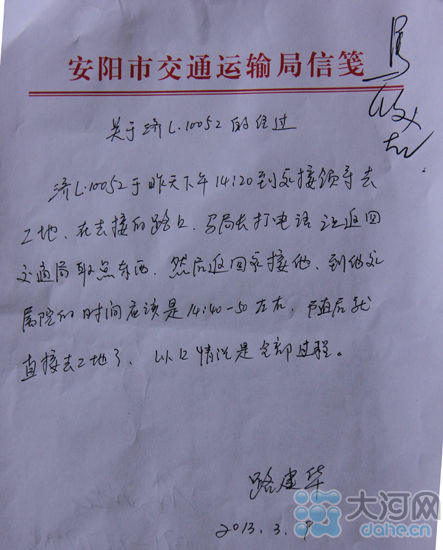 安阳市交通运输局信笺
关于济L·10052的经过
济L·10052于昨天下午14:20到家接领导去
工地、在去接的路口、马局长打电话 让返回
交通局取点东西、然后返回家接他、到他家
属院的时间应该是14:40-50左右、随后就
直接去工地了、以上情况是全部过程。
路建华
2013.3.9
大河网
dahe.cn